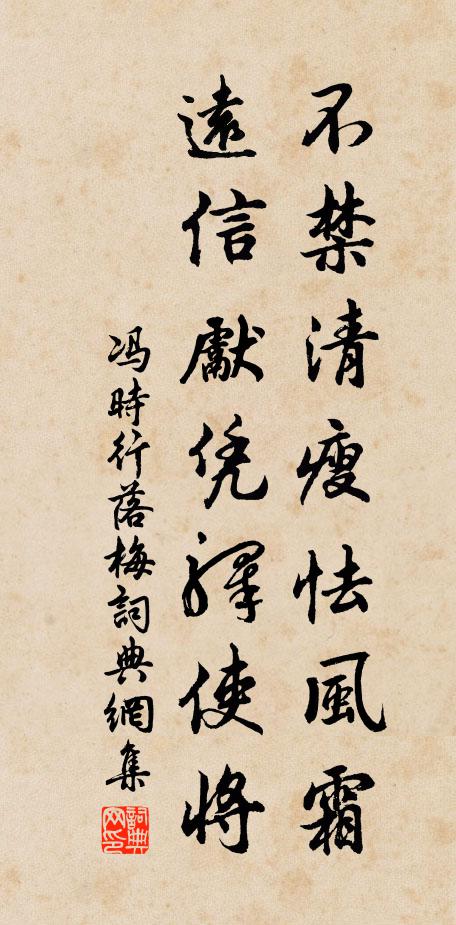 不禁清瘦怯風霜
遠信獻凭驛使將
冯時行落梅詞典網集
詞典
网印